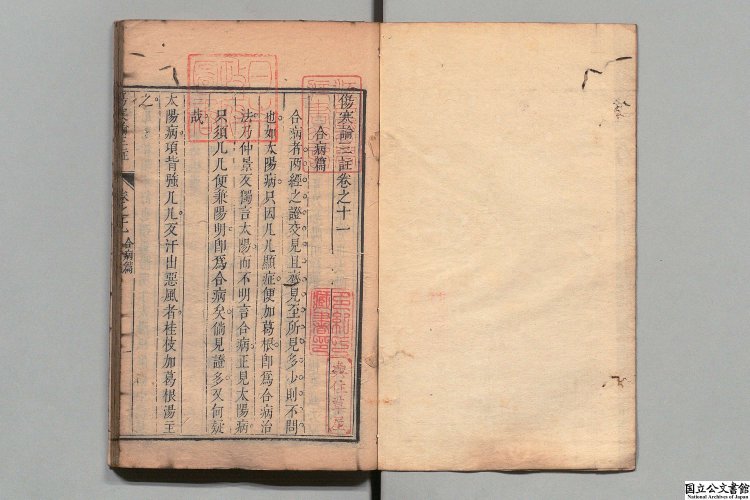 傷寒論三註卷之十一
合病篇
合病者两經之證交見且齊見至所見多少則不問
也如太陽病只因几几顯症便加葛根卽爲合病治
法乃仲景反獨言太陽而不明言合病正見太陽病
只須几几便兼陽明卽爲合病矣倘見證多又何疑
哉
太陽病項背強几几反汗出惡風者桂枝加葛根湯主
之
傷寒論三註
卷之十一 合病篇
国立公文書館
National Archives of Japan